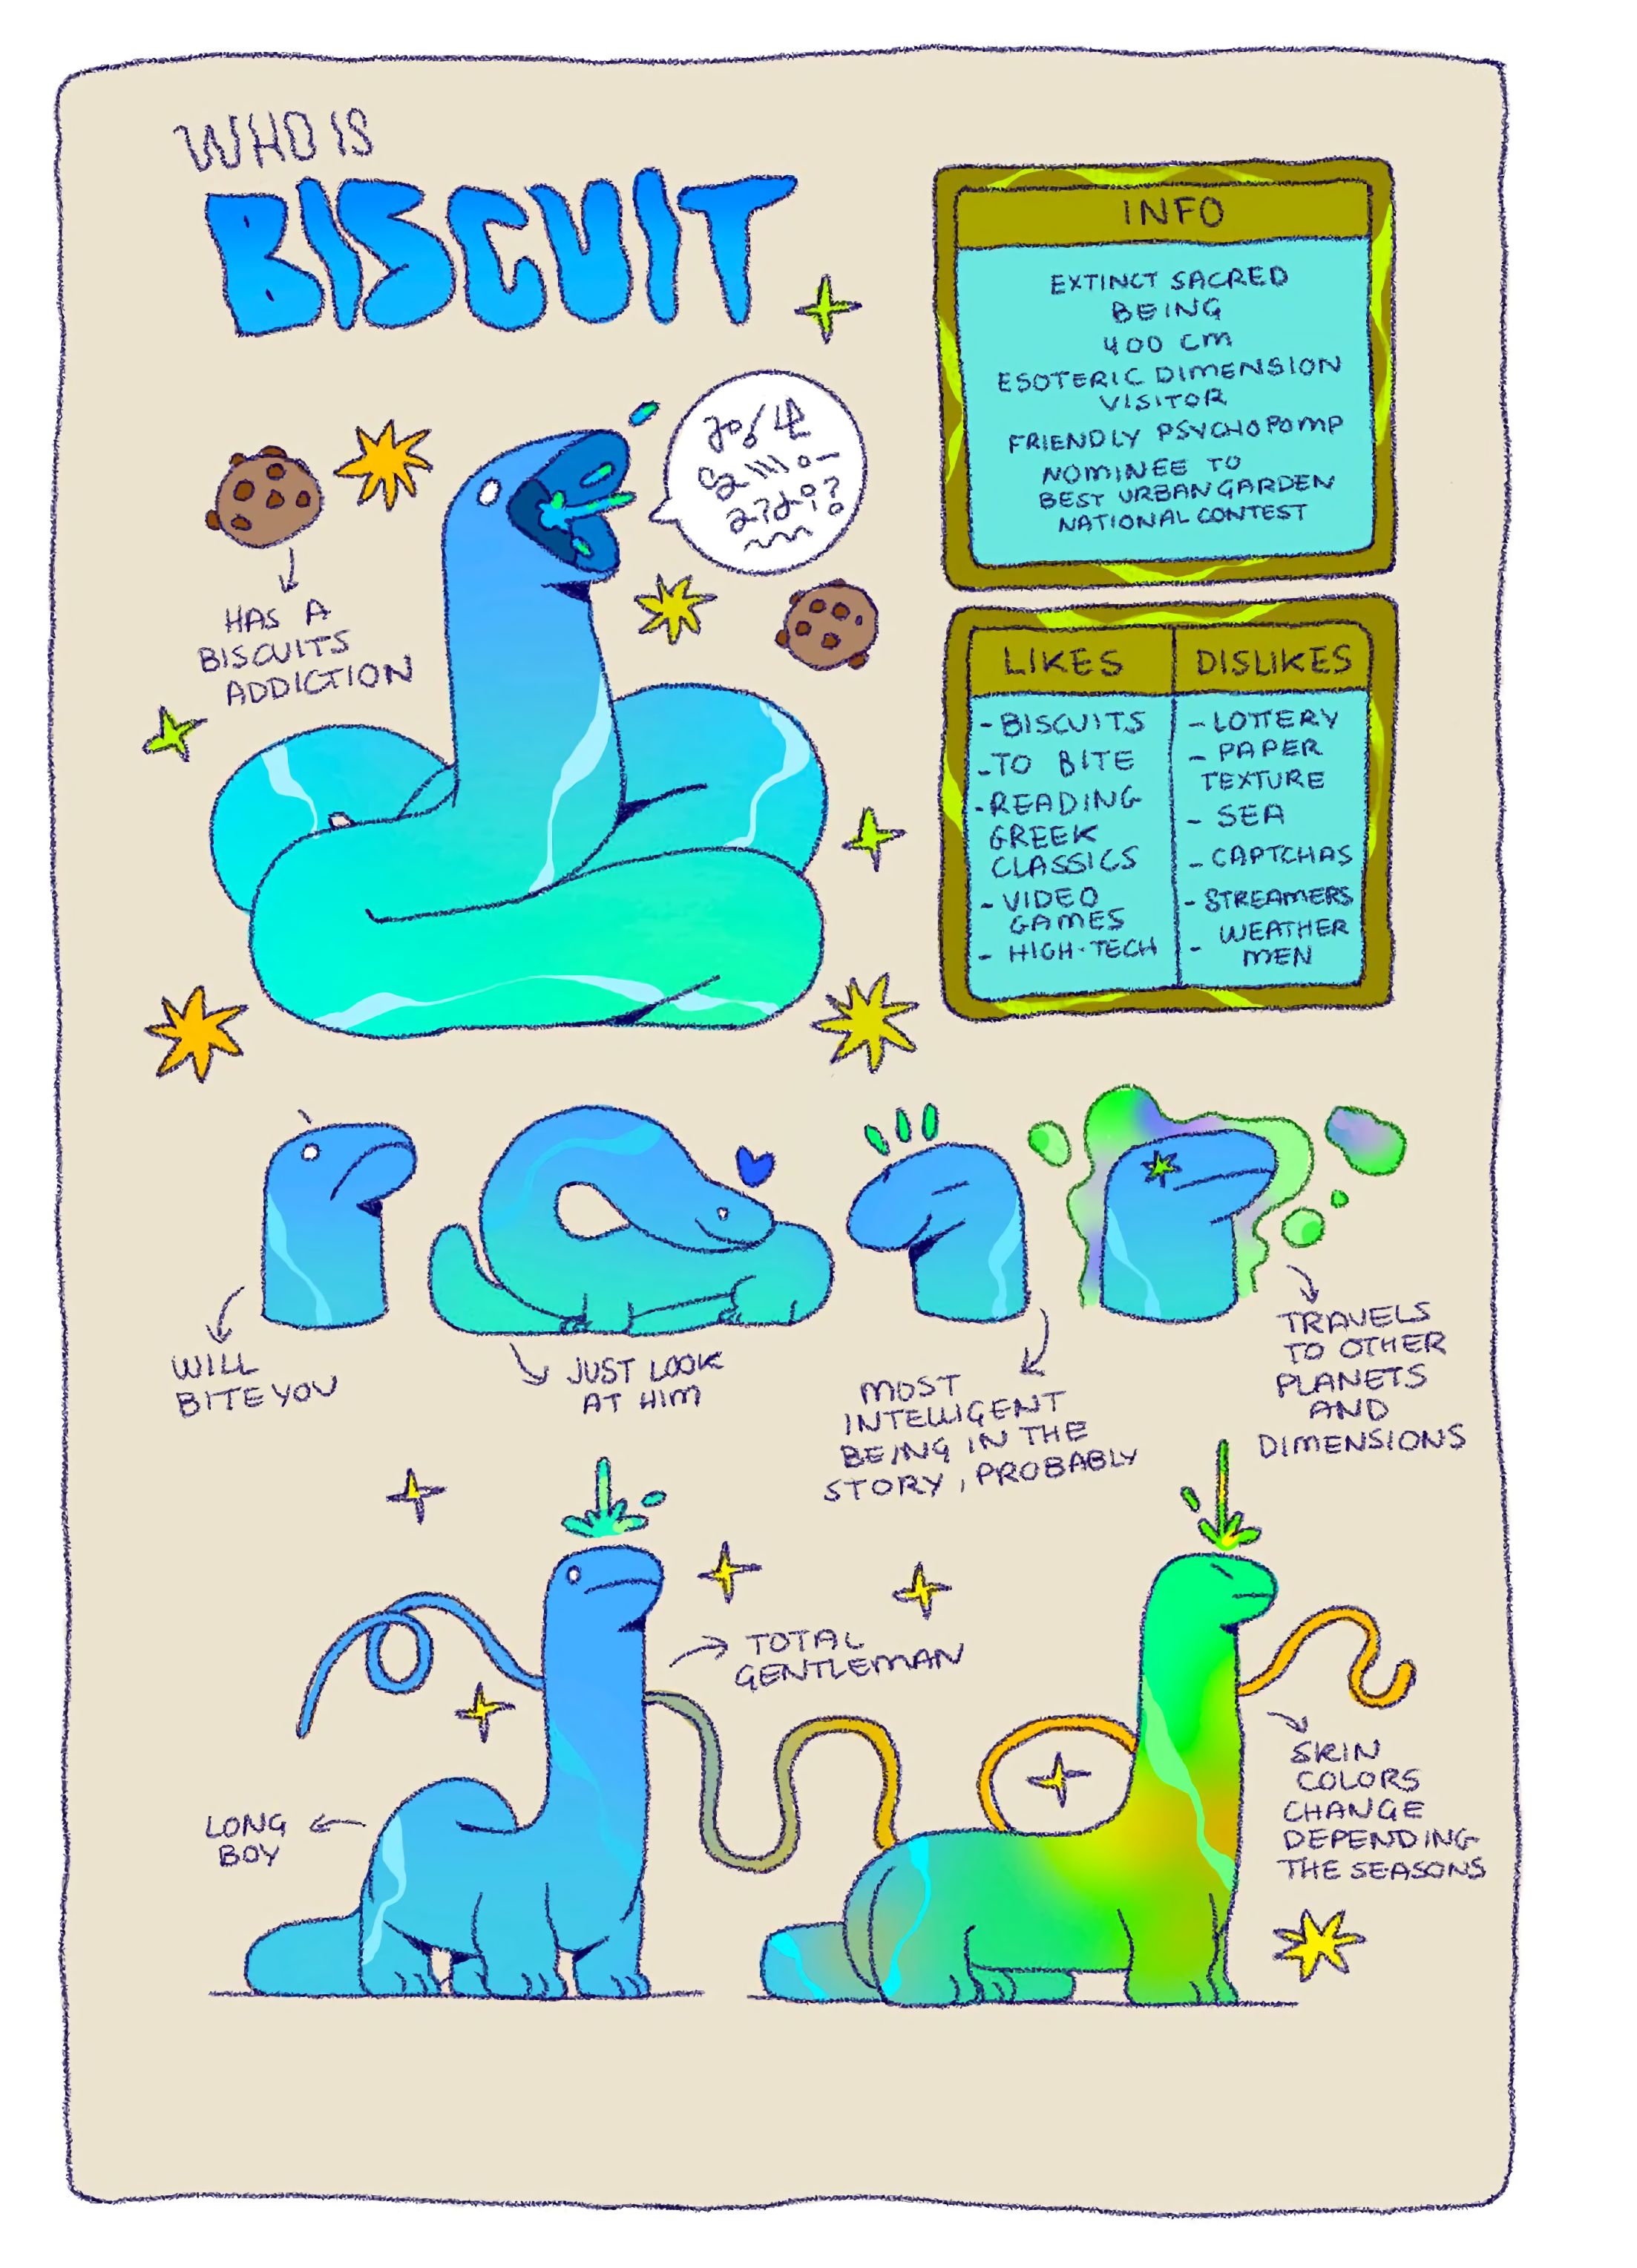 WHO IS
BISCUIT
INFO
EXTINCT SACRED
BEING
400 cm
ESOTERIC DIMENSION
VISITOR
FRIENDLY PSYCHOPOMP
NOMINEE TO
BEST URBAN GARDEN
NATIONAL CONTEST
HAS A
BISCUITS
ADDICTION
LIKES
- BISCUITS
- TO BITE
- READING
GREEK
CLASSICS
- VIDEO
GAMES
- HIGH-TECH
DISLIKES
- LOTTERY
- PAPER
TEXTURE
- SEA
- CAPTCHAS
- STREAMERS
- WEATHER
MEN
WILL
BITE YOU
JUST LOOK
AT HIM
MOST
INTELLIGENT
BEING IN THE
STORY, PROBABLY
TRAVELS
TO OTHER
PLANETS
AND
DIMENSIONS
TOTAL
GENTLEMAN
LONG
BOY
SKIN
COLORS
CHANGE
DEPENDING
THE SEASONS